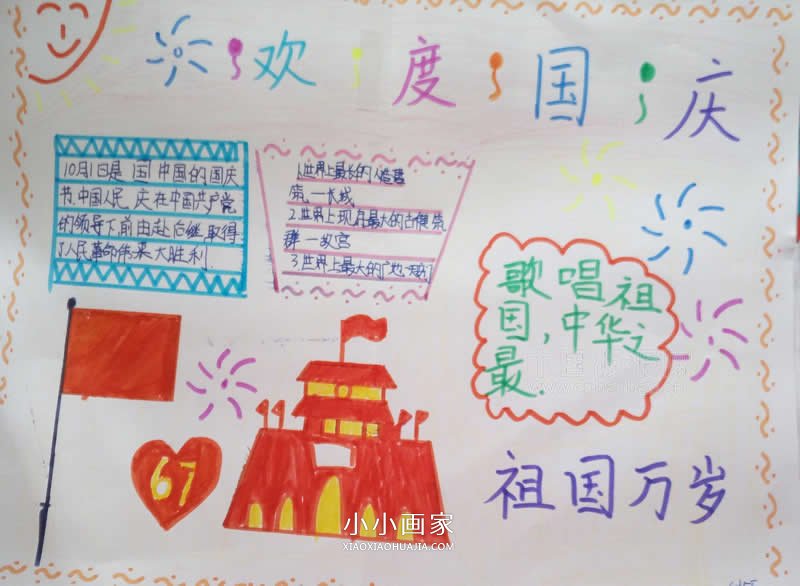 欢度国庆
10月1日是 国 中国的国庆
节.中国人民 庆在中国共产党
的领导下前由赴后继取得
了人民革命伟来大胜利.
1.世界上最长的人造建
筑.一长城
2.世界上现月最大的古建筑
群一故宫
3.世界上最大的广地
歌唱祖
国,中华之
最.
67
祖国万岁
小小画家
XIAOXIAOHUAJIA.COM